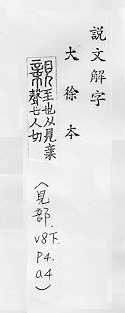 說文解字
大徐本
親至也从見亲
聲七人切
(見部.
v8下.
p4.
a4)